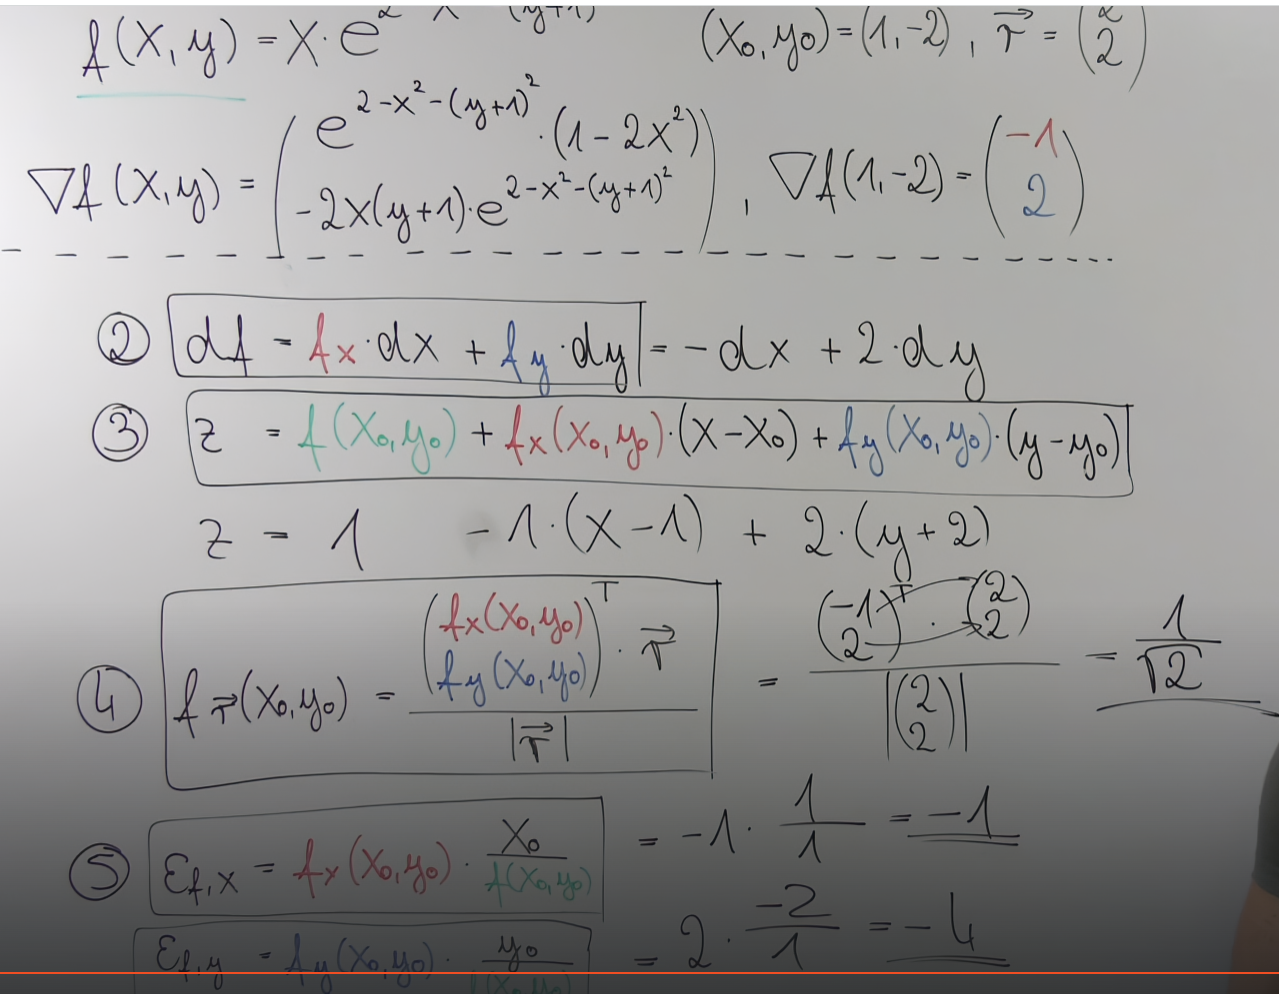 f(x,y) = x·e^(2-x²-(y+1)²)   (x₀,y₀) = (1,-2), r⃗ = (2 2)
∇f(x,y) = (e^(2-x²-(y+1)²)·(1-2x²) -2x(y+1)·e^(2-x²-(y+1)²)), ∇f(1,-2) = (-1 2)
② df = fx·dx + fy·dy = -dx + 2·dy
③ z = f(x₀,y₀) + fx(x₀,y₀)·(x-x₀) + fy(x₀,y₀)·(y-y₀)
z = 1 -1·(x-1) + 2·(y+2)
④ f r⃗(x₀,y₀) = (fx(x₀,y₀) fy(x₀,y₀))ᵀ·r⃗ / |r⃗| = (-1 2)ᵀ·(2 2) / |(2 2)| = 1/√2
⑤ εf,x = fx(x₀,y₀)·x₀/f(x₀,y₀) = -1·1/1 = -1
εf,y = fy(x₀,y₀)·y₀/f(x₀,y₀) = 2·-2/1 = -4